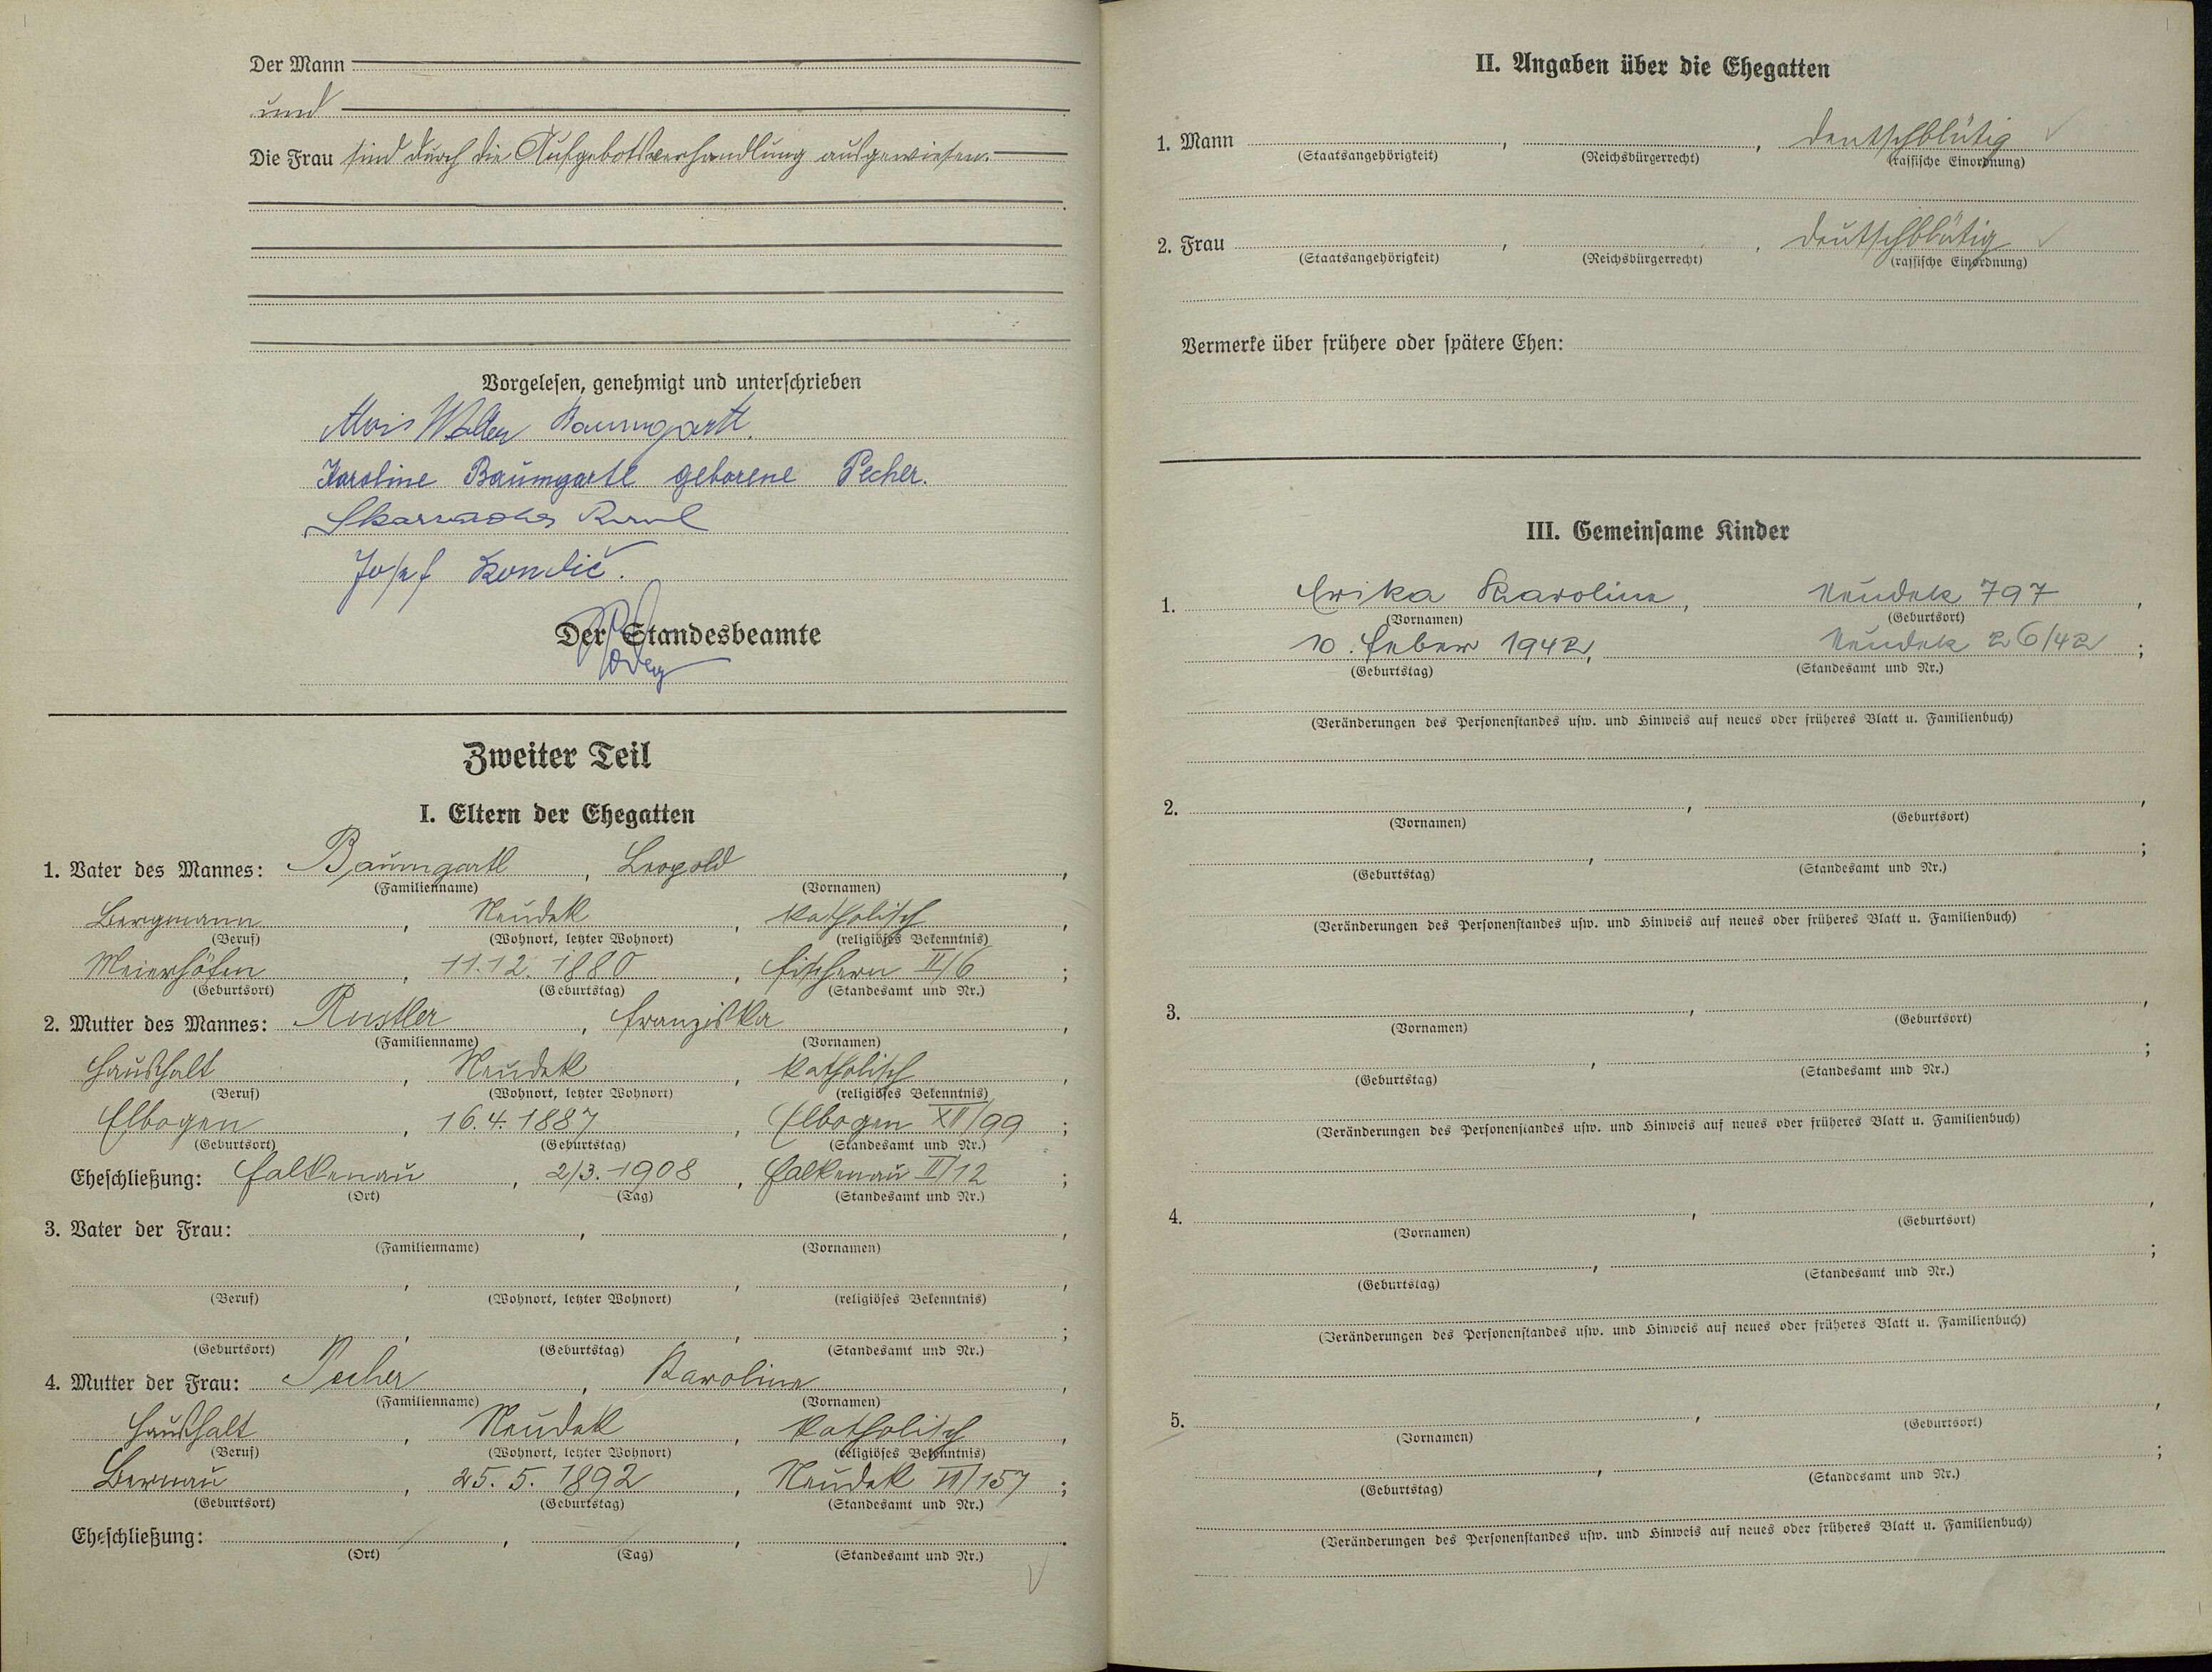 Der Mann
und
Die Frau sind durch die Aufgebotsverhandlung ausgewiesen.
Vorgelesen, genehmigt und unterschrieben
Alois Walter Baumgartl.
Karoline Baumgartl geborene Pecher.
Josef
Der Standesbeamte
Zweiter Teil
I. Eltern der Ehegatten
1. Vater des Mannes: Baumgartl, Leopold,
(Familienname) (Vornamen)
Bergmann, Neudek, katholisch,
(Beruf) (Wohnort, letzter Wohnort) (religiöses Bekenntnis)
Meierhöfen, 11.12.1880, Fischern II/6;
(Geburtsort) (Geburtstag) (Standesamt und Nr.)
2. Mutter des Mannes: Rustler, Franziska,
(Familienname) (Vornamen)
Haushalt, Neudek, katholisch,
(Beruf) (Wohnort, letzter Wohnort) (religiöses Bekenntnis)
Elbogen, 16.4.1887, Elbogen XII/99;
(Geburtsort) (Geburtstag) (Standesamt und Nr.)
Eheschließung: Falkenau, 2/3.1908, Falkenau II/12;
(Ort) (Tag) (Standesamt und Nr.)
3. Vater der Frau: , ,
(Familienname) (Vornamen)
, , ,
(Beruf) (Wohnort, letzter Wohnort) (religiöses Bekenntnis)
, , ;
(Geburtsort) (Geburtstag) (Standesamt und Nr.)
4. Mutter der Frau: Pecher, Karoline,
(Familienname) (Vornamen)
Haushalt, Neudek, katholisch,
(Beruf) (Wohnort, letzter Wohnort) (religiöses Bekenntnis)
Bernau, 25.5.1892, Neudek /157;
(Geburtsort) (Geburtstag) (Standesamt und Nr.)
Eheschließung: , , .
(Ort) (Tag) (Standesamt und Nr.)
II. Angaben über die Ehegatten
1. Mann , , deutschblütig
(Staatsangehörigkeit) (Reichsbürgerrecht) (rassische Einordnung)
2. Frau , , deutschblütig
(Staatsangehörigkeit) (Reichsbürgerrecht) (rassische Einordnung)
Vermerke über frühere oder spätere Ehen:
III. Gemeinsame Kinder
1. Erika Karoline, Neudek 797,
(Vornamen) (Geburtsort)
10. Feber 1942, Neudek 26/42;
(Geburtstag) (Standesamt und Nr.)
(Veränderungen des Personenstandes usw. und Hinweis auf neues oder früheres Blatt u. Familienbuch)
2. , ,
(Vornamen) (Geburtsort)
, ;
(Geburtstag) (Standesamt und Nr.)
(Veränderungen des Personenstandes usw. und Hinweis auf neues oder früheres Blatt u. Familienbuch)
3. , ,
(Vornamen) (Geburtsort)
, ;
(Geburtstag) (Standesamt und Nr.)
(Veränderungen des Personenstandes usw. und Hinweis auf neues oder früheres Blatt u. Familienbuch)
4. , ,
(Vornamen) (Geburtsort)
, ;
(Geburtstag) (Standesamt und Nr.)
(Veränderungen des Personenstandes usw. und Hinweis auf neues oder früheres Blatt u. Familienbuch)
5. , ,
(Vornamen) (Geburtsort)
, ;
(Geburtstag) (Standesamt und Nr.)
(Veränderungen des Personenstandes usw. und Hinweis auf neues oder früheres Blatt u. Familienbuch)